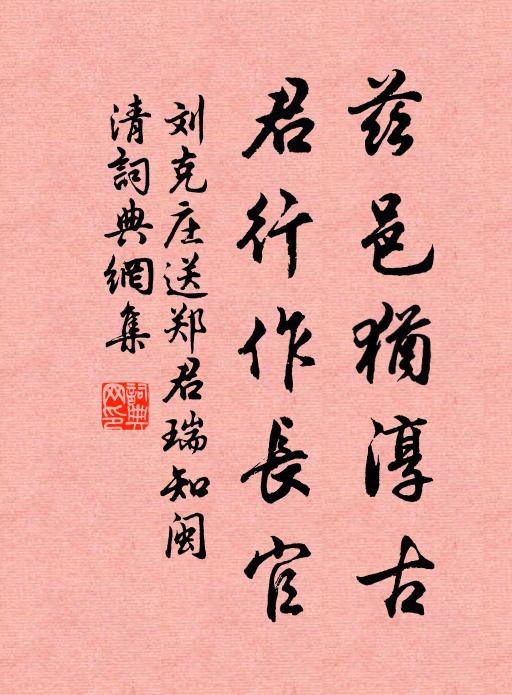 茲邑猶淳古
君行作長官
刘克庄送郑君瑞知闽
清詞典網集
詞典
网印